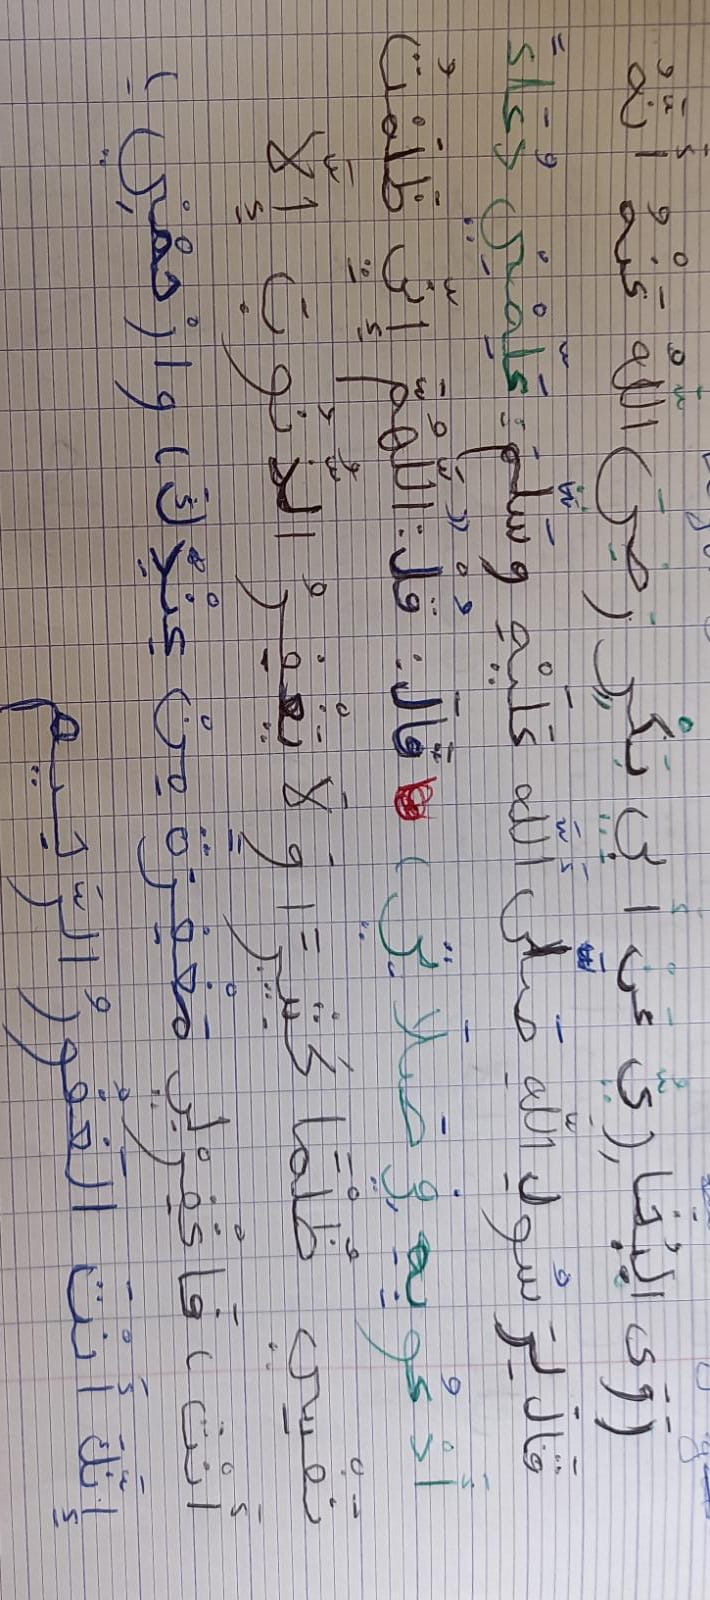 رَوَى الْبُخَارِيُّ عَنْ أَبِي بَكْرٍ رَضِيَ اللَّهُ عَنْهُ أَنَّهُ
قَالَ لِرَسُولِ اللَّهِ صَلَّى اللَّهُ عَلَيْهِ وَسَلَّمَ: عَلِّمْنِي دُعَاءً
أَدْعُو بِهِ فِي صَلَاتِي، قَالَ: قُلْ: "اللَّهُمَّ إِنِّي ظَلَمْتُ
نَفْسِي ظُلْمًا كَثِيرًا وَلَا يَغْفِرُ الذُّنُوبَ إِلَّا
أَنْتَ، فَاغْفِرْ لِي مَغْفِرَةً مِنْ عِنْدِكَ، وَارْحَمْنِي،
إِنَّكَ أَنْتَ الْغَفُورُ الرَّحِيم